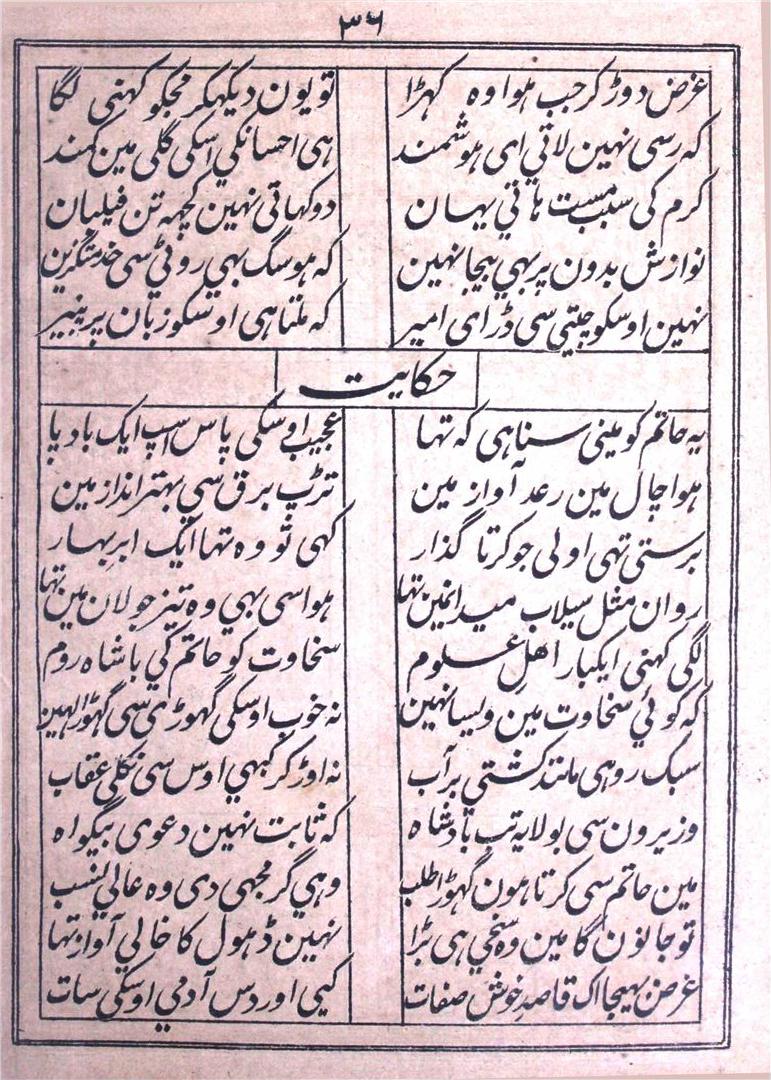 ۳۶
غرض دوڑ کر جب ہوا وہ کہڑا تو یون دیکہکر مجکو کہنی لگا
کہ رسی نہین لاتي ای ہوشمند ہی احسانکي اسکی گلی مین کمند
کرم کی سبب مست ہاتي یہان دوکہاتی نہین کچہہ تن فیلبان
نوازش بدون پر بہي بیجا نہین کہ ہو سگ بہي روٹي سی خدمتگزین
نہین اوسکو چیتي سی ڈر ای امیر کہ ملتا ہی اوسکو زبان پر پنیر
حکایت
یہ حاتم کو مینی سنا ہی کہ تہا عجیب اوسکی پاس اسپ ایک بادپا
ہوا چال مین رعد آواز مین تڑپ برق سي بہتر انداز مین
برستی تہی اولی جو کرتا گذار کہی تو وہ تہا ایک ابر بہار
روان مثل سیلاب میدانمین تہا ہوا سی بہي وہ تیز جولان مین تہا
لگی کہنی ایکبار اهل علوم سخاوت کو حاتم کي با شاہ روم
کہ کوئي سخاوت مین ویسا نہین نہ خوب اوسکی گہوڑی سی گہوڑا کہین
سبک رو ہی مانند کشتي بر آب نہ اوڑ کر کبہي اوس سی نکلی عقاب
وزیرون سی بولا یہ تب بادشاہ کہ ثابت نہین دعوی بیگواہ
مین حاتم سی کرتا ہون گہوڑا طلب وهي گر مجہی دی وہ عالي نسب
تو جانون گا مین وہ سخي ہی بڑا نہین ڈهول کا خالي آواز تہا
غرض بہیجا اک قاصد خوش صفات کیی اور دس آدمي اوسکی سات